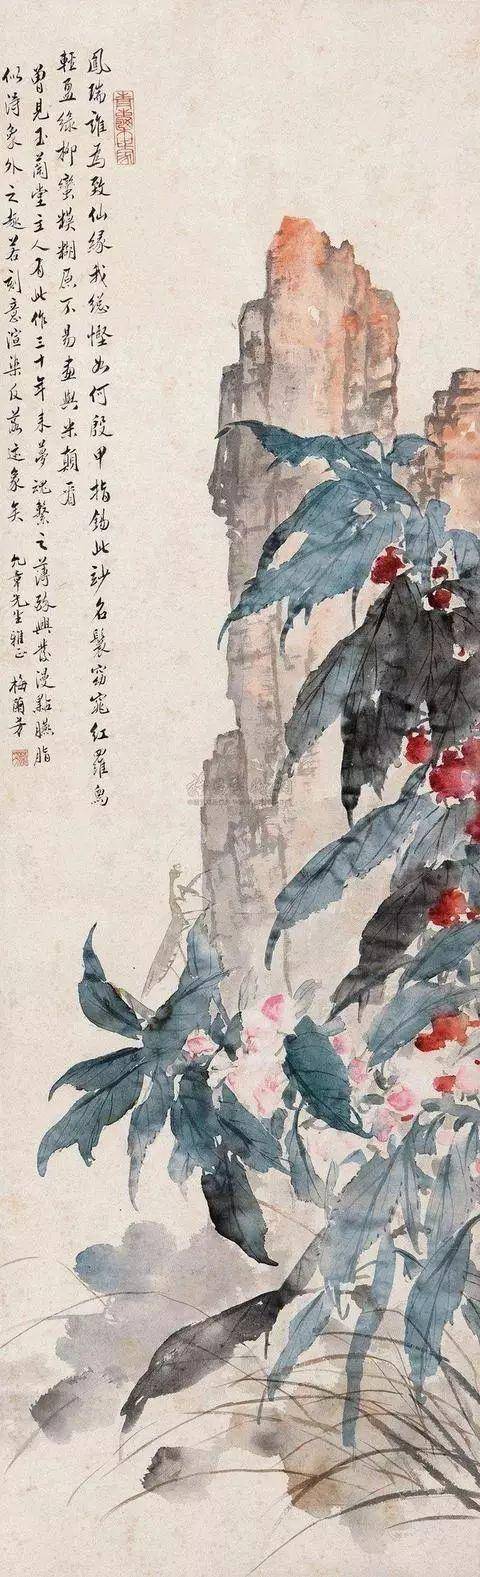 鳳瑞誰為致仙緣我總慳如何殷甲指錫此妙名鬟窈窕紅羅
輕盈綠柳蠻糢糊原不易畫與米顛看
曾見玉蘭堂主人有此作三十年來夢魂繫之薄發興漫點臙脂
似得象外之趣若刻意渲染反落迹象矣
九章先生雅正 梅蘭芳